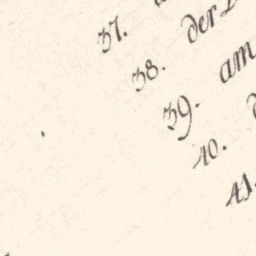 37.
38. der
39. am
40.
41.